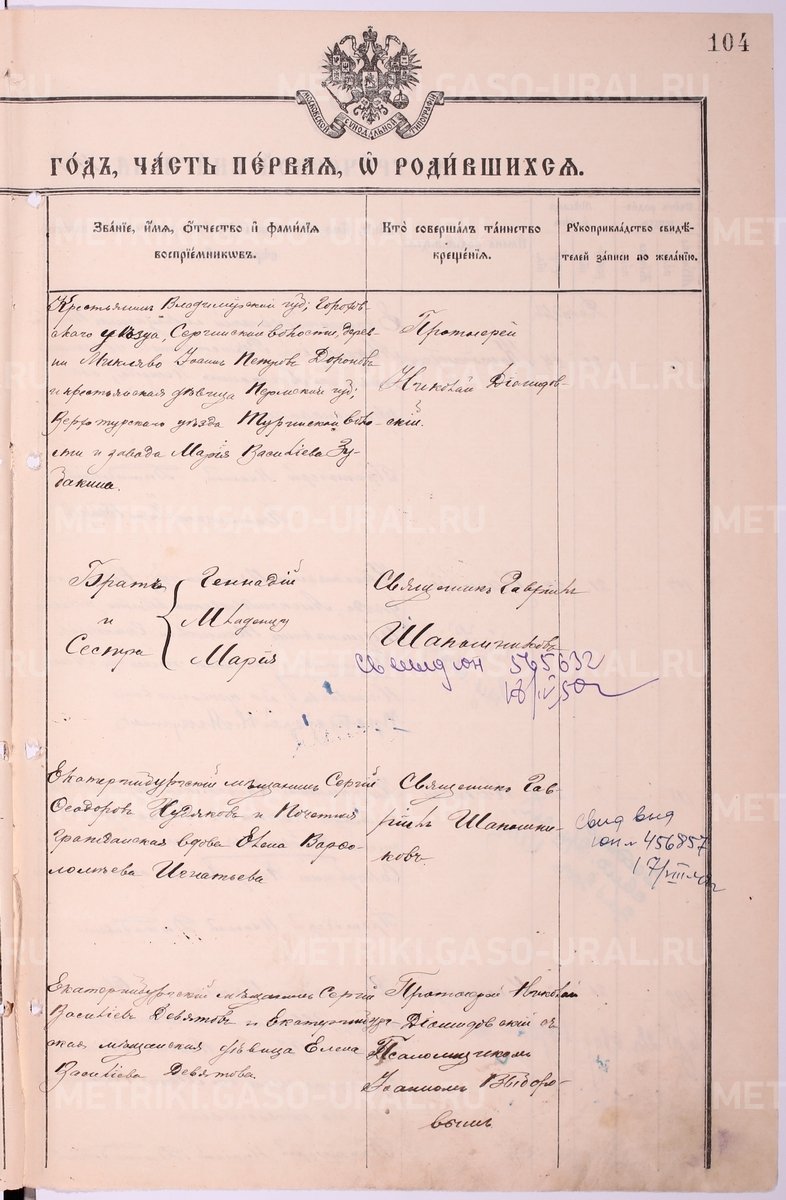 104
МОСКОВСКОЙ СѴНОДАЛЬНОЙ ТИПОГРАФІИ
ГО́ДЪ, ЧА́СТЬ ПЕ́РВАЯ, Ѡ҆ РОДИ́ВШИХСЯ.
Зва́ніе, и҆́мя, ѻ҆́тчество и҆ фами́лія
воспріе́мниковъ.
Кто̀ соверша́лъ та́инство
креще́нія.
Рꙋкоприкла́дство свидѣ́-
телей за́писи по жела́нію.
Крестьянинъ Владимірской губ; Горохов-
скаго уѣзда, Сергинской волости, дерев-
ни Іоаннъ Петровъ Дороновъ
и крестьянская дѣвица Пермской губ;
Верхотурскаго уѣзда Туринской воло-
сти и завода Марія Василіева Зу-
бакина.
Протоіерей
Николай Діомидов-
скій.
Братъ Геннадій
и Младенцу
Сестра Марія
Священникъ Гавріилъ
Шапошниковъ
ЮН 565632
18/IV 50г
Екатеринбургскій мѣщанинъ Сергій
Ѳеодоровъ Худяковъ и Почетная
гражданская вдова Елена Варѳо-
ломѣева Игнатьева
Священникъ Гав-
ріилъ Шапошни-
ковъ.
свид выд
юн № 456857
17/VIII
Екатеринбургскій мѣщанинъ Сергій
Василіевъ Девятовъ и Екатеринбург-
ская мѣщанская дѣвица Елена
Василіева Девятова.
Протоіерей Николай
Діомидовскій съ
Псаломщикомъ
Іоанномъ Выдоро-
вымъ
METRIKI.GASO-URAL.RU